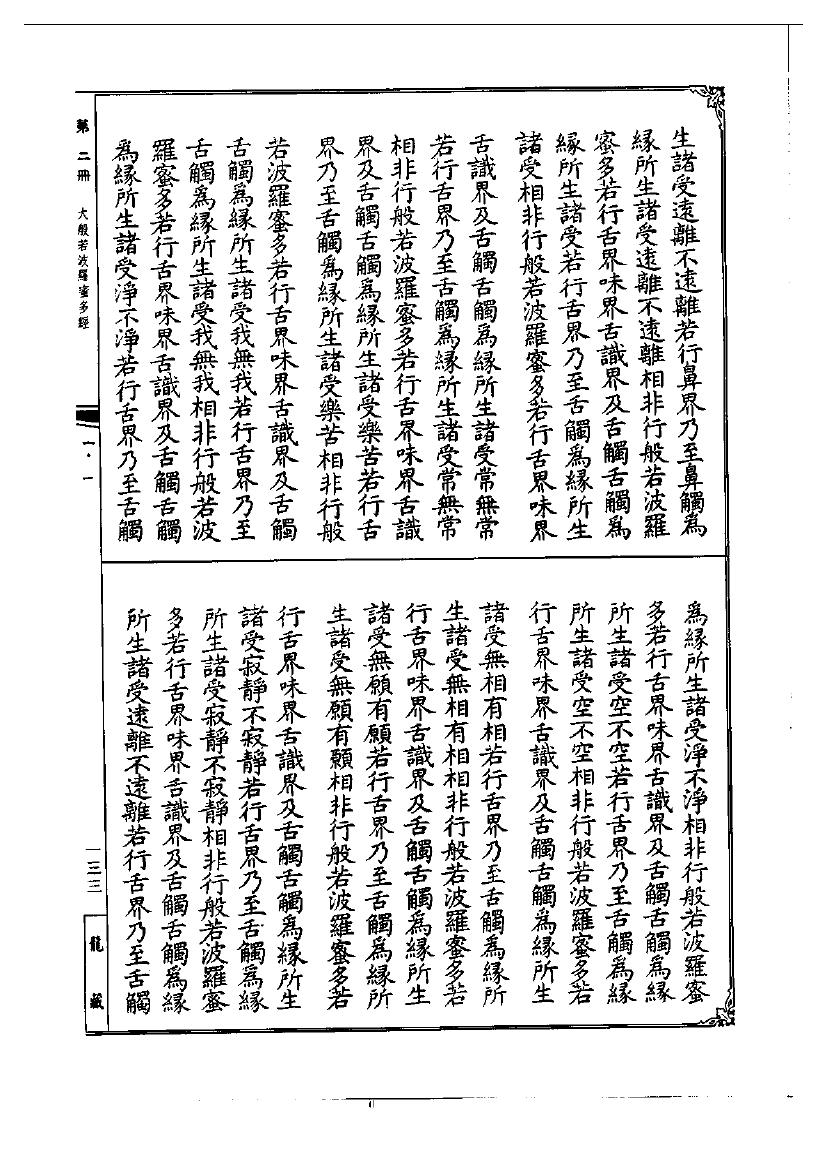 生諸受遠離不遠離若行鼻界乃至鼻觸爲
緣所生諸受遠離不遠離相非行般若波羅
蜜多若行舌界味界舌識界及舌觸舌觸爲
緣所生諸受若行舌界乃至舌觸爲緣所生
諸受相非行般若波羅蜜多若行舌界味界
舌識界及舌觸舌觸爲緣所生諸受常無常
若行舌界乃至舌觸爲緣所生諸受常無常
相非行般若波羅蜜多若行舌界味界舌識
界及舌觸舌觸爲緣所生諸受樂苦若行舌
界乃至舌觸爲緣所生諸受樂苦相非行般
若波羅蜜多若行舌界味界舌識界及舌觸
舌觸爲緣所生諸受我無我若行舌界乃至
舌觸爲緣所生諸受我無我相非行般若波
羅蜜多若行舌界味界舌識界及舌觸舌觸
爲緣所生諸受淨不淨若行舌界乃至舌觸
爲緣所生諸受淨不淨相非行般若波羅蜜
多若行舌界味界舌識界及舌觸舌觸爲緣
所生諸受空不空若行舌界乃至舌觸爲緣
所生諸受空不空相非行般若波羅蜜多若
行舌界味界舌識界及舌觸舌觸爲緣所生
諸受無相有相若行舌界乃至舌觸爲緣所
生諸受無相有相相非行般若波羅蜜多若
行舌界味界舌識界及舌觸舌觸爲緣所生
諸受無願有願若行舌界乃至舌觸爲緣所
生諸受無願有願相非行般若波羅蜜多若
行舌界味界舌識界及舌觸舌觸爲緣所生
諸受寂靜不寂靜若行舌界乃至舌觸爲緣
所生諸受寂靜不寂靜相非行般若波羅蜜
多若行舌界味界舌識界及舌觸舌觸爲緣
所生諸受遠離不遠離若行舌界乃至舌觸
第二冊 大般若波羅蜜多經
一·一
一三三
龍藏